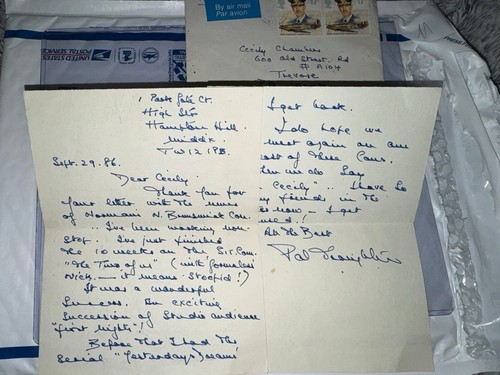 UNITED STATES
POSTAL SERVICE
By air mail
Par avion
Cecily Chambers
600 Old Street Rd
# A104
Trevose
1 Park Gate Ct.
High St
Hampton Hill
Middx
TW12 1PB.
Sept. 29. 86.
Dear Cecily.
Thank you for
your letter with the news
of Norman's N. Brunswick Con.
I've been working non-
stop. I've just finished
the 10 weeks on the Sit. Com.
"The Two of us" (with
Nick. — it means Stoopid!)
It was a wonderful
success. An exciting
succession of Studio audience
"first nights"!
Before that I had the
serial "Yesterday's Dreams"
I get back.
I do hope we
meet again on one
of these Cons.
we do say
Cecily". I have so
friends in the
now — I get
used!
All the Best